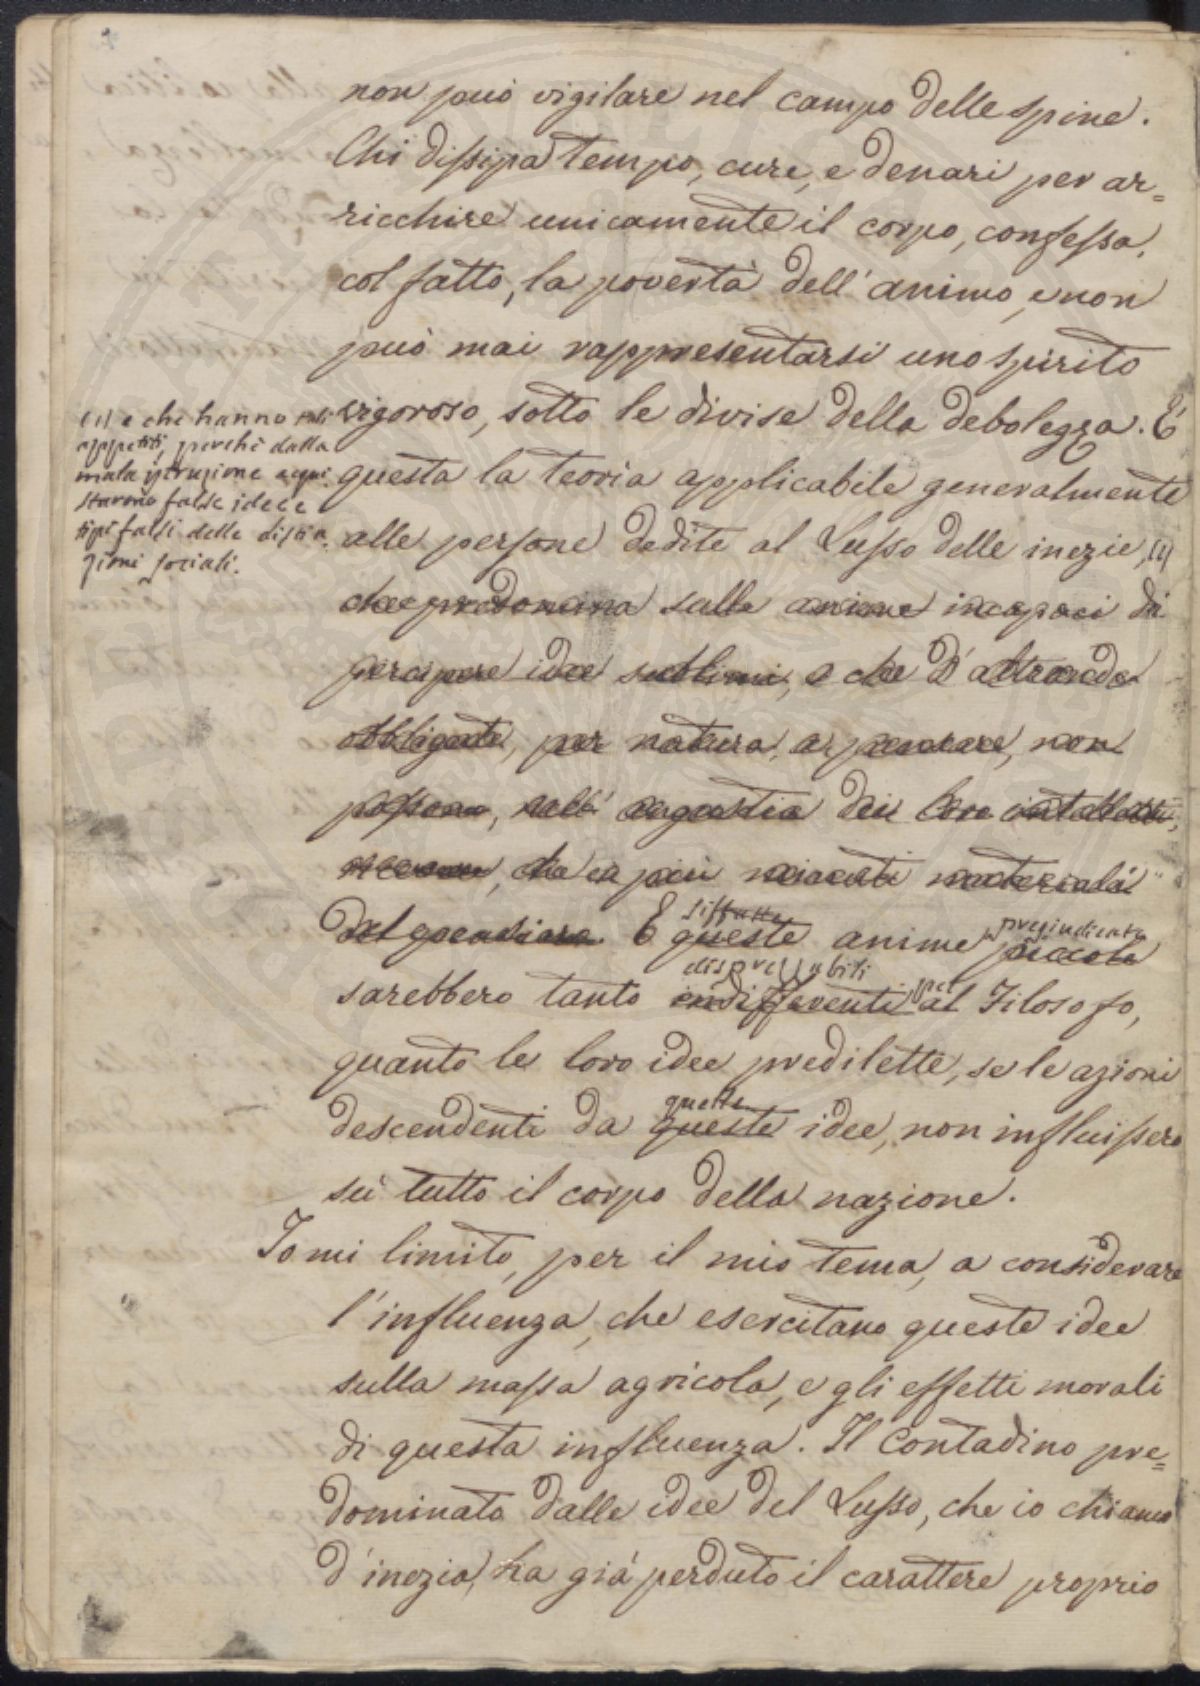 non può vigilare nel campo delle spine.
Chi dissipa tempo, cure, e denari per ar=
ricchire unicamente il corpo, confessa,
col fatto, la povertà dell'animo, e non
può mai rappresentarsi uno spirito
vigoroso, sotto le divise della debolezza. È
questa la teoria applicabile generalmente
alle persone dedite al Lusso delle inezie, (1)
(1) e che hanno tali
appetiti, perchè dalla
mala istruzione acqui
starono false idee e
tipi falsi delle distin
zioni sociali.
che predomina sulle anime incapaci di
percipere idee sublimi, e che d'altronde
obbligate, per natura, a pensare, non
possono, nell'angustia dei loro intelletti,
che ai più minuti materiali
del pensiero. E queste anime piccole
siffatte pregiudicate
sarebbero tanto indifferenti al Filosofo,
disprezzabili pel
quanto le loro idee predilette, se le azioni
descendenti da queste idee, non influissero
quelle
sù tutto il corpo della nazione.
Io mi limito, per il mio tema, a considerare
l'influenza, che esercitano queste idee
sulla massa agricola, e gli effetti morali
di questa influenza. Il Contadino pre=
dominato dalle idee del Lusso, che io chiamo
d'inezia, ha già perduto il carattere proprio